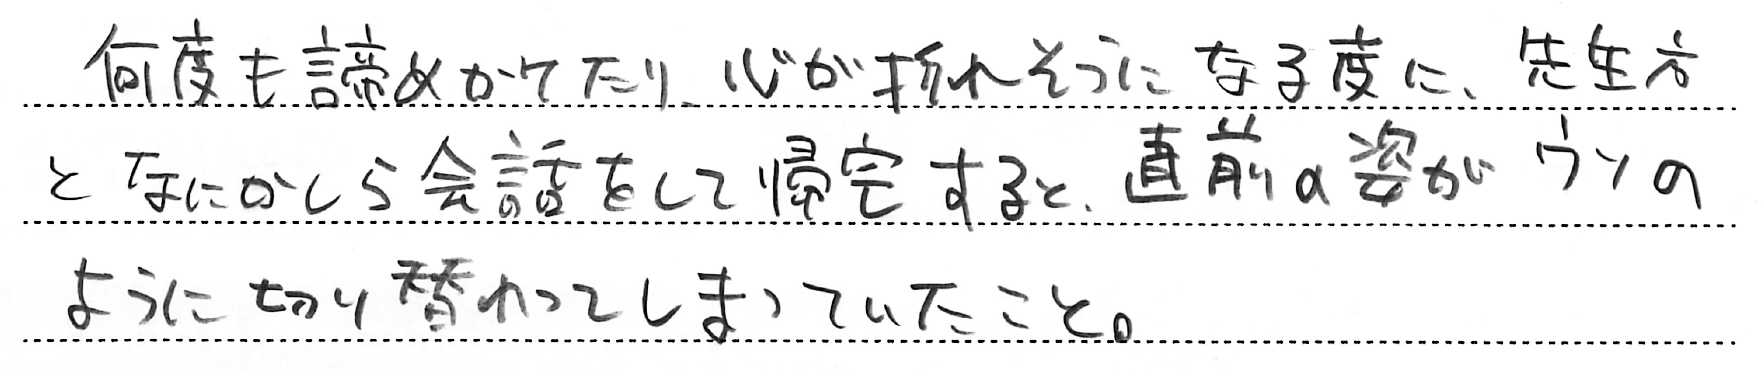 何度も諦めかけたり、心が折れそうになる度に、先生方
となにかしら会話をして帰宅すると、直前の姿がウソの
ように切り替わってしまっていたこと。